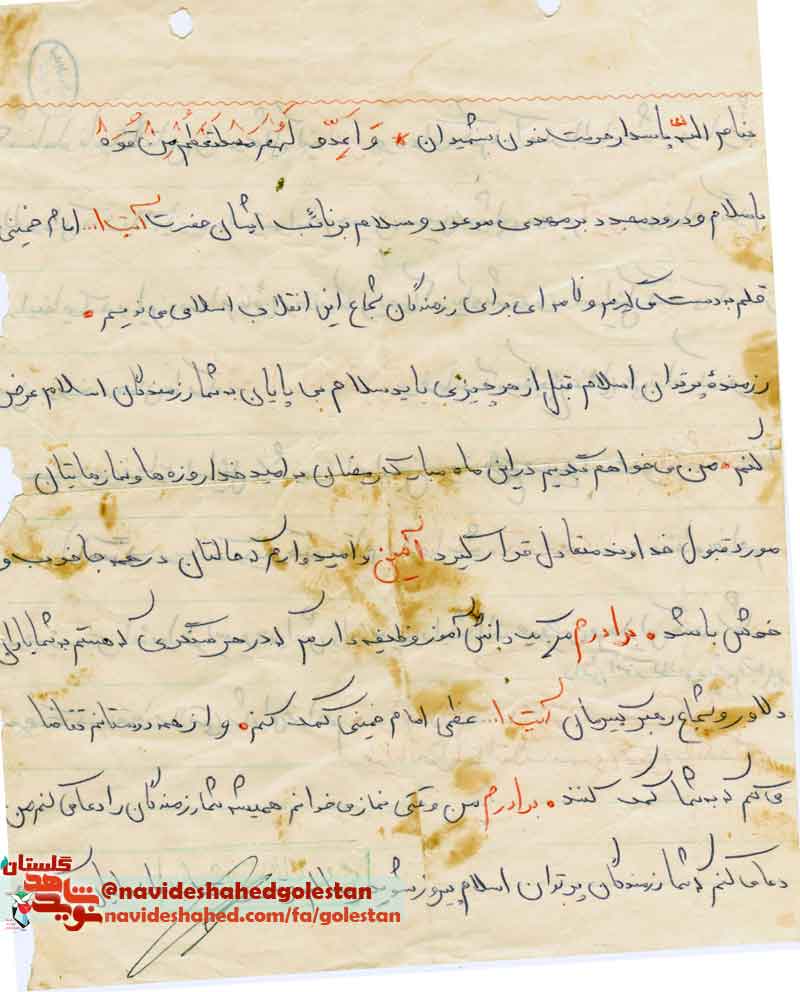 بنام الله پاسدار حرمت خون شهیدان * وَ اَعِدّو لَهُم مَسْتَطَعْتُم مِن قُوه
با سلام و درود مجدد بر مهدی موعود و سلام بر نائب ایشان حضرت آیت ا... امام خمینی
قلم به دست می گیرم و نامه ای برای رزمندگان شجاع این انقلاب اسلامی می نویسم.
رزمندهٔ پرتوان اسلام قبل از هر چیزی باید سلام بی پایان به شما رزمندگان اسلام عرض
کنم. من می خواهم بگویم در این ماه مبارک رمضان به امید خدا روزه ها و نمازهایتان
مورد قبول خداوند متعادل قرار گیرد آمین و امیدوارم که حالتان در همه جا خوب و
خوش باشد. برادرم من یک دانش آموز وظیفه دارم که در هر سنگری که هستم به شما یاران
دلاور و شجاع رهبر کبیرمان آیت ا... عظمی امام خمینی کمک کنم. و از همه دوستانم تقاضا
می کنم که به شما کمک کنند. برادرم من وقتی نماز می خوانم همیشه شما رزمندگان را دعا می کنم من
دعا می کنم که شما رزمندگان پرتوان اسلام پیروز شوید
گلستان
نوید شاهد
@navideshahedgolestan
navideshahed.com/fa/golestan